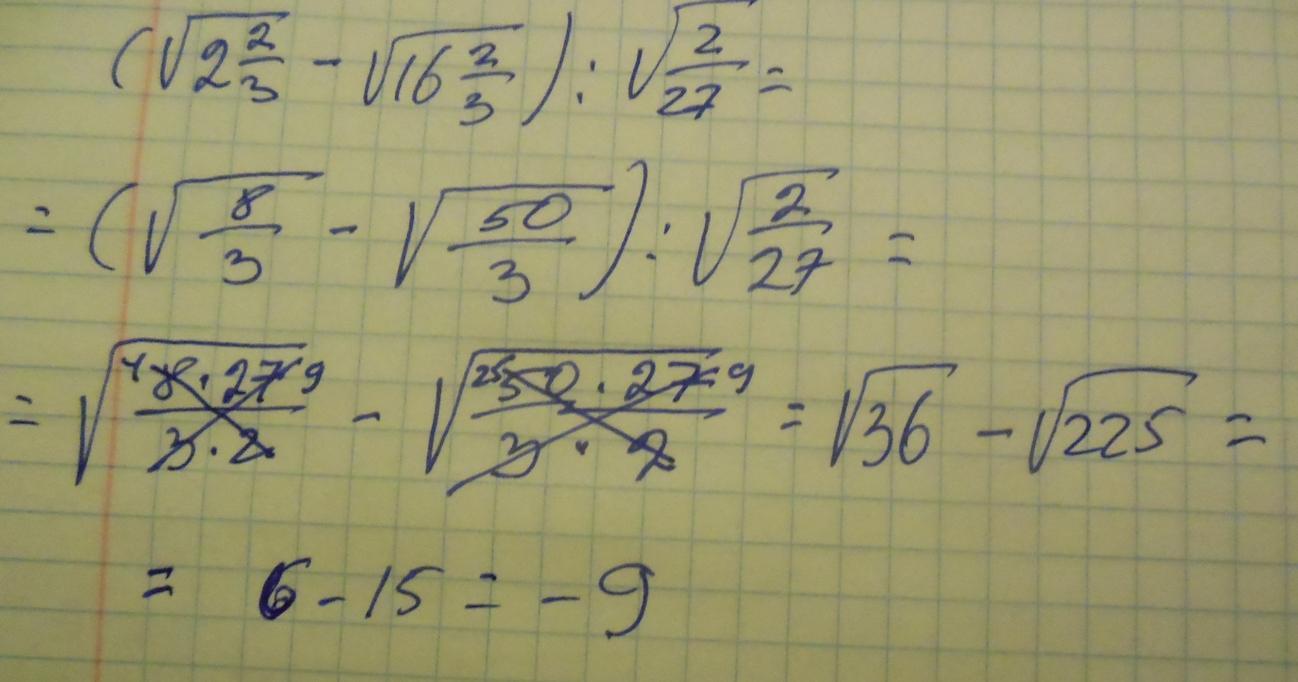 (√2 2/3 - √16 2/3) : √2/27 =
= (√8/3 - √50/3) : √2/27 =
= √4 8·27 9/3·2 - √25 50·27 9/3·2 = √36 - √225 =
= 6 - 15 = -9